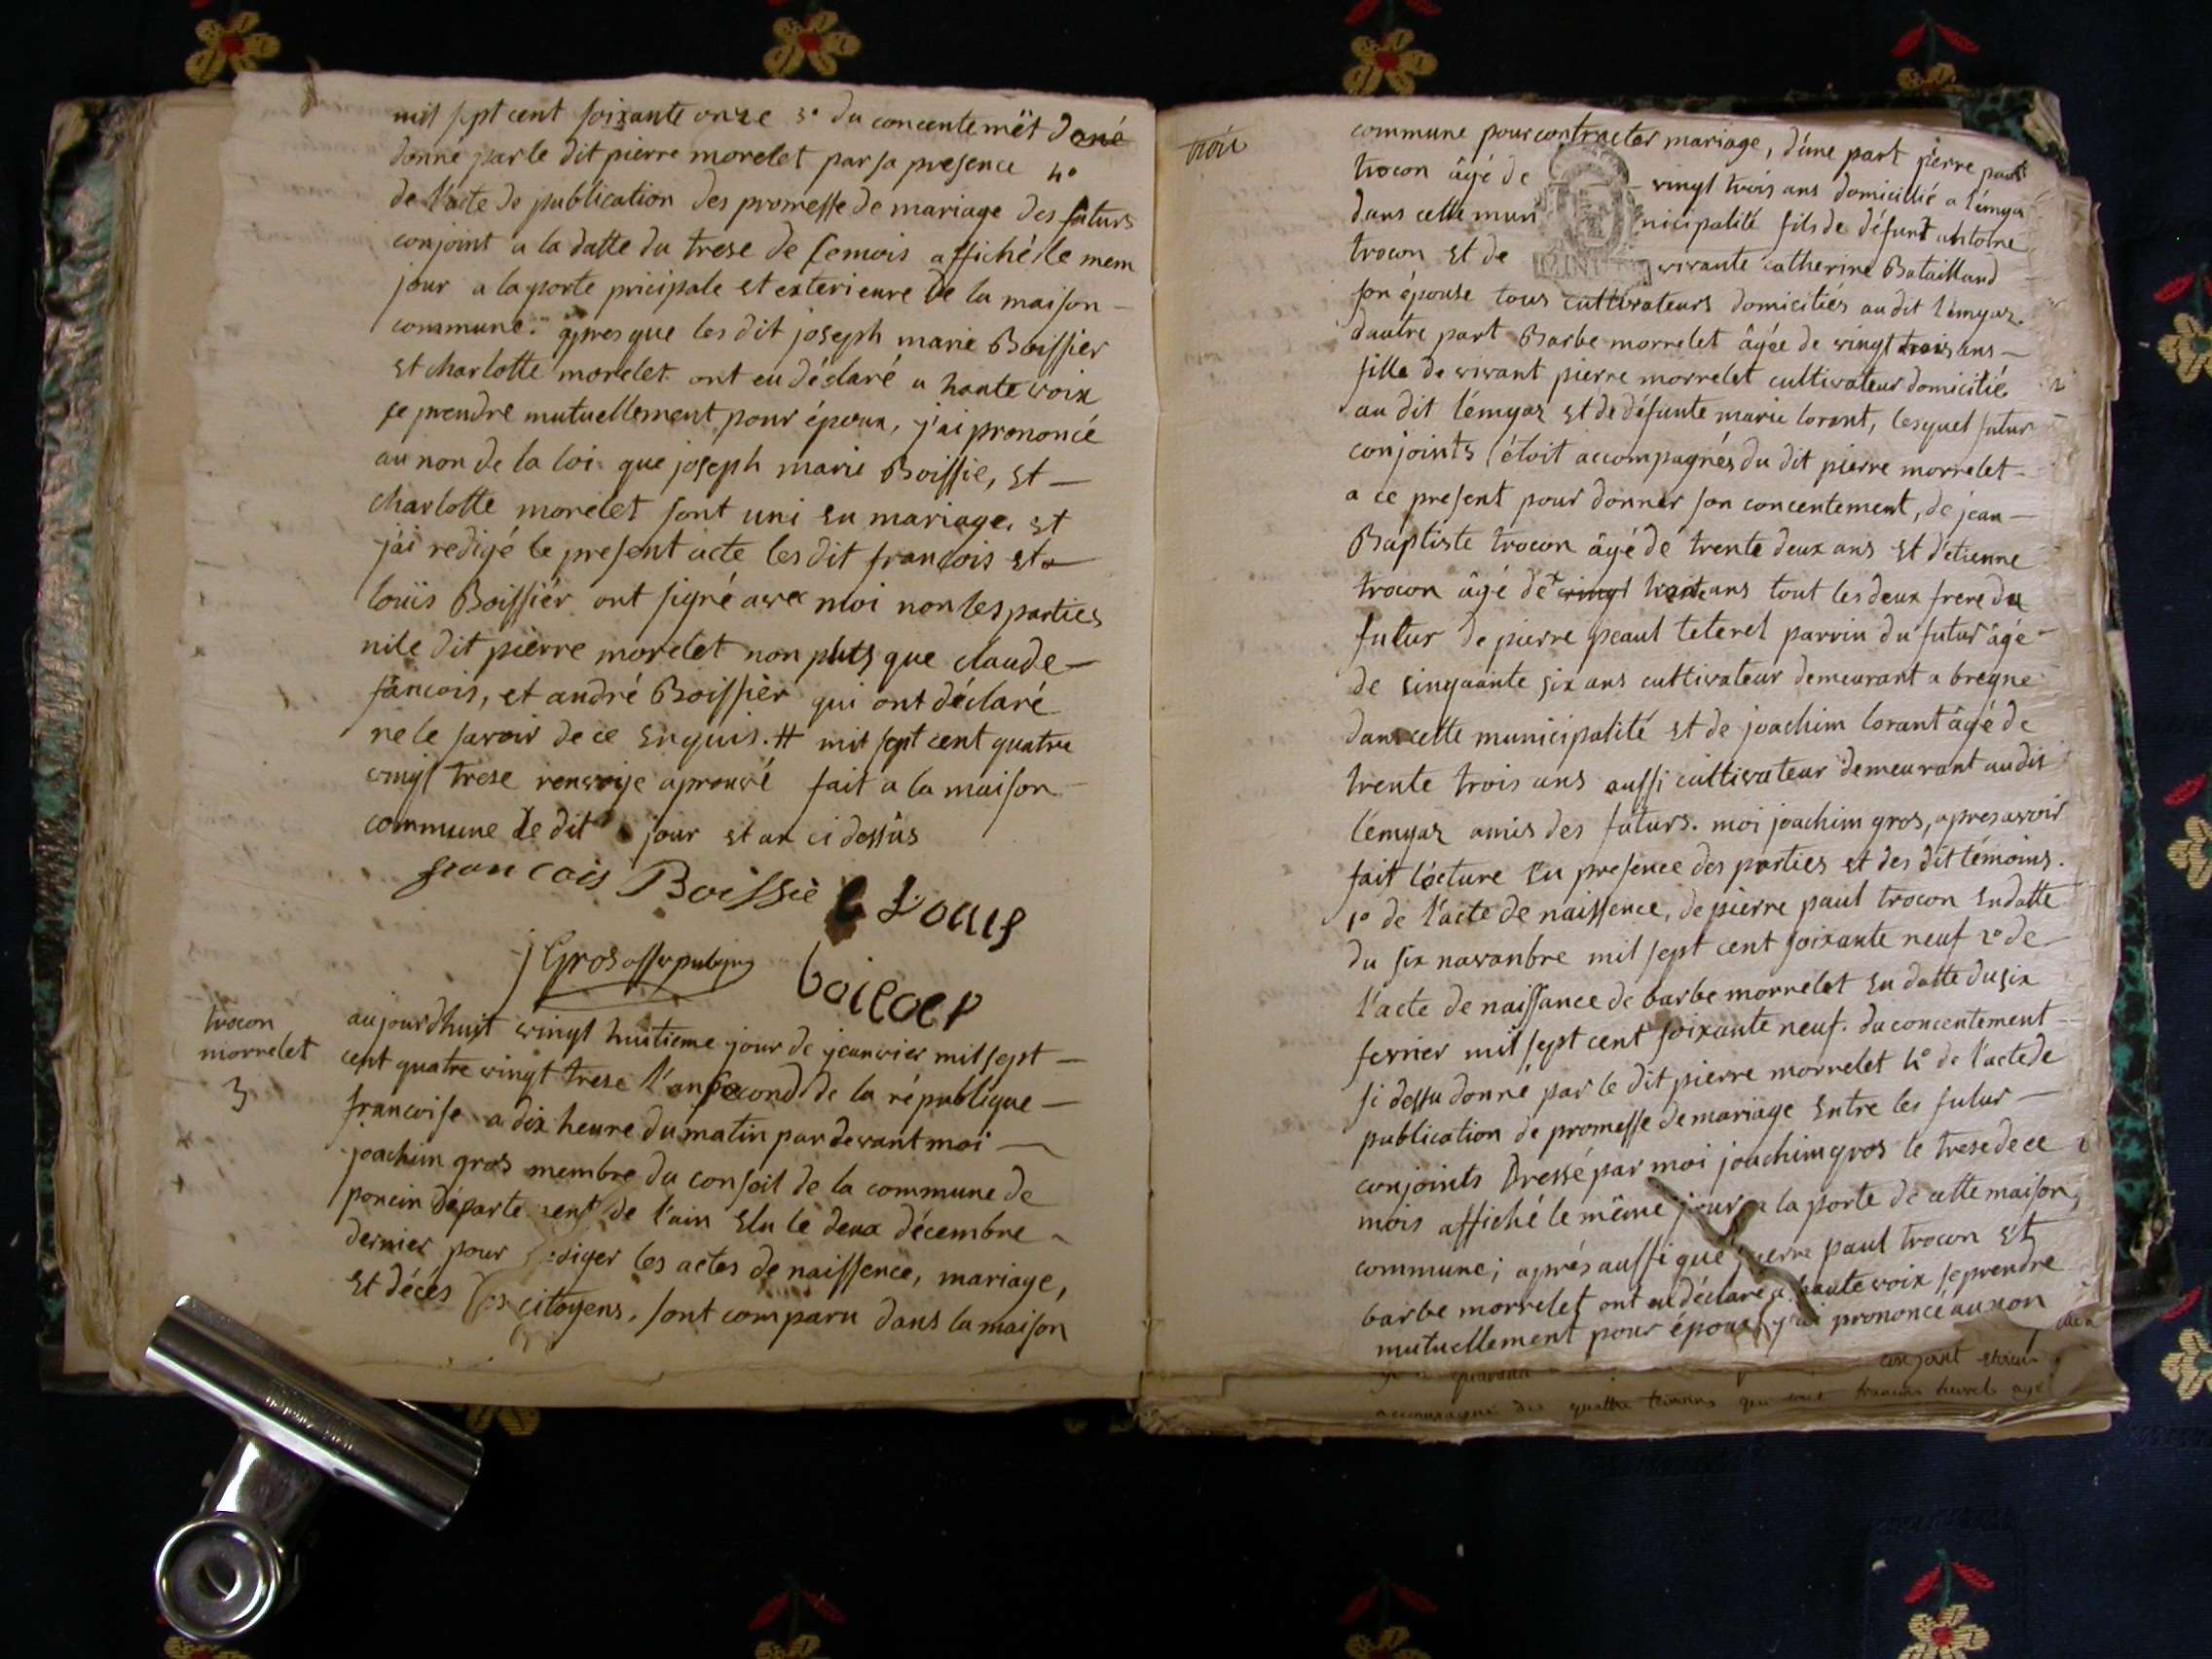 mil sept cent soixante onze 3° du concentemët doné
donné par le dit pierre morelet par sa presence 4°
de l'acte de publication des promesse de mariage des futurs
conjoint a la datte du trese de semois affiché le mem
jour a la porte pricipale et exterieure de la maison
commune. apres que les dit joseph marie Boissier
et charlotte morelet ont eu déclaré a haute voix
se prendre mutuellement pour époux, j'ai prononcé
au non de la loi que joseph marie Boissie, et
charlotte morelet sont uni en mariage, et
j'ai redigé le present acte les dit francois et
louis Boissier ont signé avec moi non les parties
ni le dit pierre morelet non pluts que claude
fancois, et andré Boissier qui ont déclaré
ne le savoir de ce enquis. # mil sept cent quatre
vingt trese renvoye aprouvé fait a la maison
commune le dit jour et an ci dessus
francois Boissie Louis
j Gros boicoer
trocon
morrelet
3
aujourdhuit vingt huitieme jour de jeanvier mil sept
cent quatre vingt trese l'an second de la république
francoise a dix heure du matin par devant moi
joachim gros membre du conseil de la commune de
poncin département de l'ain elu le deux décembre
dernier pour rediger les actes de naissence, mariage,
et décés des citoyens, sont comparu dans la maison
trois
commune pour contracter mariage, d'une part pierre paul
trocon âgé de vingt trois ans domicillié a l'émyas
dans cette muni nicipalité fils de défunt antoine
trocon et de vivante catherine Bataillard
son épouse tous cultivateurs domiciliés au dit l'émyas
dautre part Barbe morrelet âgée de vingt trois ans
fille de vivant pierre morrelet cultivateur domicilié
au dit lémyas et de défunte marie lorant, lesquel futur
conjoints étoit accompagnés du dit pierre morrelet
a ce present pour donner son concentement, de jean
Baptiste trocon âgé de trente deux ans et d'etienne
trocon âgé de vingt trente ans tout les deux frere du
futur de pierre peaul teterel parrin du futur âgé
de sinquante six ans cultivateur demeurant a bregne
dans cette municipalité et de joachim lorant âgé de
trente trois ans aussi cultivateur demeurant au dit
l'émyas amis des futurs. moi joachim gros, apres avoir
fait l'écture en presence des parties et des dit témoins.
1° de l'acte de naissence, de pierre paul trocon en datte
du six navanbre mil sept cent soixante neuf 2° de
l'acte de naissance de barbe morrelet en datte du six
fevrier mil sept cent soixante neuf. du concentement
si dessu donné par le dit pierre morrelet 4° de l'acte de
publication de promesse de mariage entre les futur
conjoints dressé par moi joachim gros le trese de ce
mois affiché le même jour a la porte de cette maison
commune; aprés aussi que pierre paul trocon et
barbe morrelet ont eu déclaré a haute voix se prendre
mutuellement pour époux j'ai prononcé au non
conjoint
accompagné des quattre temoins qui sont francois